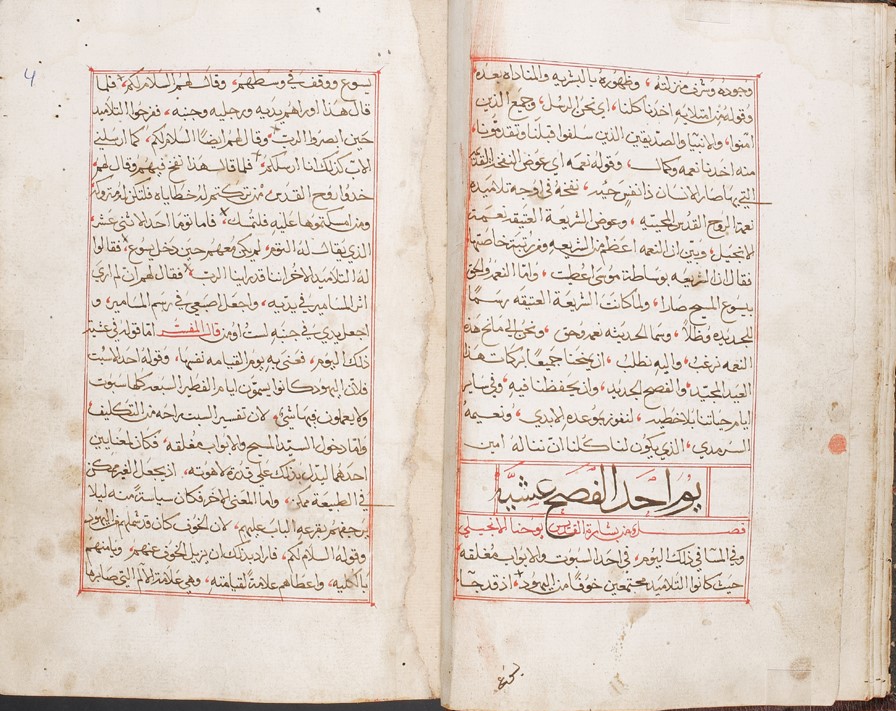 وجوده وشرف منزلته، وظهوره بالبشريه والمناداه بعده
وقوله من امتلايه اخدنا كلنا، اي نحن الرسل، وجميع الذين
امنوا، والانبيا والصديقين الذين سلفوا قبلنا وتقدمونا،
منه اخدنا نعمه وكمالا، وقوله نعمه اي عوض النفخه
التي بها صار الانسان ذا نفس حيه، نفخه في اوجه تلاميده
نعمة الروح القدس المحييه، وعوض الشريعة العتيقه نعمة
الانجيل، وبين ان النعمه اعظم من الشريعه ومن رتبة خاصتها
فقال ان الشريعه بوساطة موسى اعطيت، واما النعمه والحق
بيسوع المسيح صارا، ولما كانت الشريعة العتيقه رسما
للجديده وظلا، وسما الحديثه نعمه وحق، ونحن الى مانح هذه
النعمه نرغب، واليه نطلب، ان يمنحنا جميعا بركات هذا
العيد المجيد، والفصح الجديد، وان يحفظنا فيه، وفي ساير
ايام حياتنا بلا خطيه، لنفوز بوعده الابدي، ونعيمه
السرمدي، الذي يكون لنا كلنا ان نناله امين
يوم احد الفصح عشية
فصل من بشارة القديس يوحنا الانجيلي
وفي المسا في ذلك اليوم، في احد السبوت والابواب مغلقه
حيث كانوا التلاميد مجتمعين خوفا من اليهود، اذ قد جا
يسوع ووقف في وسطهم، وقال لهم السلام لكم، فلما
قال هذا اوراهم يديه ورجليه وجنبه، ففرحوا التلاميد
حين ابصروا الرب، وقال لهم ايضا السلام لكم، كما ارسلني
الاب كذلك انا ارسلكم، فلما قال هذا نفخ فيهم وقال لهم
خدوا روح القدس، من تركتم له خطاياه فلتترك
ومن امسكتموها عليه فلتمسك، فاما توما احد الاثني عشر
الذي يقال له التوم، لم يكن معهم حين دخل يسوع، فقالوا
له التلاميد الاخر اننا قد راينا الرب، فقال لهم ان لم ارى
اثر المسامير في يديه، واجعل اصبعي في رسم المسامير، و
اجعل يدي في جنبه لست اومن قال المفسر اما قوله في عشية
ذلك اليوم، فعنى به يوم القيامه نفسها، وقوله احد السبت
فلان اليهود كانوا يسمون ايام الفطير السبعه كلها سبوت
ولا يعملون فيها شي، لان تفسير السبت راحه من التكليف
واما دخول السيد المسيح والابواب مغلقه، فكان لمعنايين
احدهما ليدل بذلك على قدرة لاهوته، اذ يجعل الغير ممكن
في الطبيعة ممكنا، واما المعنى الاخر فكان سياسة منه ليلا
يرجفهم بقرعه الباب عليهم، لان الخوف كان قد شملهم من اليهود
وقوله السلام لكم، فاراد بذلك ان يزيل الخوف عنهم، ويامنهم
بالكليه، واعطاهم علامة لقيامته، وهي علامة الالم التي صابرها